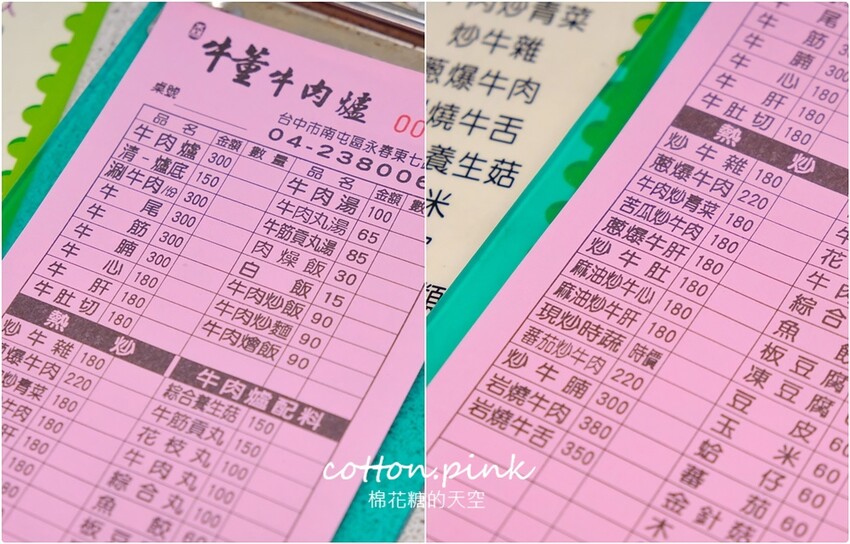 牛董牛肉爐
00
桌號
台中市南屯區永春東七
04-238006
品名 金額 數量 品名 金額 數
牛肉爐 300 牛肉湯 100
清-爐底 150 牛肉丸湯 65
涮牛肉/份 300 牛筋貢丸湯 85
牛尾 300 肉燥飯 30
牛筋 300 白飯 15
牛腩 300 牛肉炒飯 90
牛心 180 牛肉炒麵 90
牛肝 180 牛肉燴飯 90
牛肚切 180
熱炒 牛肉爐配料
炒牛雜 180 綜合養生菇 150
爆牛肉 220 牛筋貢丸 150
炒青菜 180 花枝丸 100
牛肉 180 牛肉丸 100
牛肝 180 綜合丸 100
180 魚餃 60
板豆
肉炒青菜
炒牛雜
蔥爆牛肉
燒牛舌
養生菇
米
類
牛尾 300
牛筋 300
牛腩 300
牛心 180
牛肝 180
牛肚切 180
熱炒
炒牛雜 180
蔥爆牛肉 220
牛肉炒青菜 180
苦瓜炒牛肉 180
蔥爆牛肝 180
炒牛肚 180
麻油炒牛心 180
麻油炒牛肝 180
現炒時蔬 時價
蕃茄炒牛肉 220
炒牛腩 300
岩燒牛肉 380
岩燒牛舌 350
花
牛肉
綜合
魚餃
板豆腐
凍豆腐
豆皮 60
玉米 60
蛤仔 60
蕃茄 60
金針菇
木
cotton.pink
棉花糖的天空